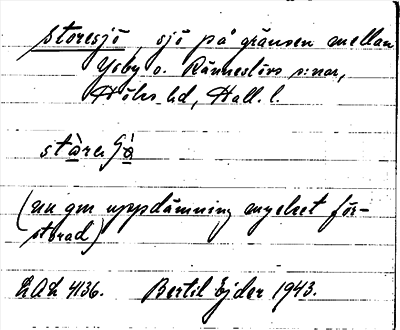 storesjö, sjö på gränsen mellan
Ysby o. Ränneslövs s:nar,
Höks hd, Hall. l.
(nu gm uppdämning mycket för-
storad)
LAL 4136. Bertil Ejder 1943.